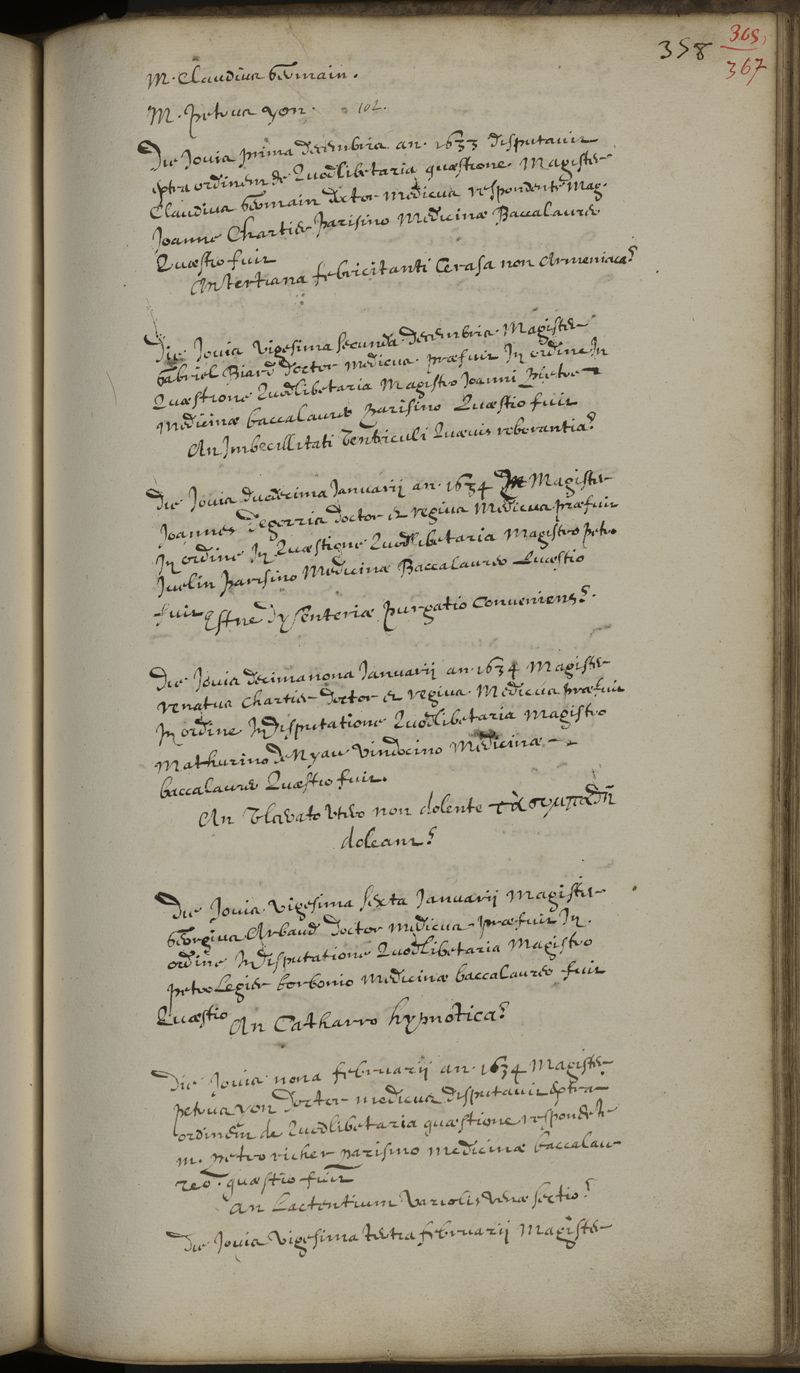 358 365,
367
M. Claudius Germain.
M. Petrus yon. 102.
Die Jovis prima decembris an. 1633 disputavit
extra ordinem de Quodlibetaria quæstione Magister
Claudius Germain doctor medicus respondente Mag.
Joanne Chartier Parisino Medicinæ Baccalaureo
Quæstio fuit
An tertiana febricitanti Cerasa non Armeniaca?
Die Jovis vigesima secunda decembris Magister
Gabriel Biard doctor medicus præfuit In ordine In
Quæstione Quodlibetaria Magistro Joanni
Medicinæ baccalaureo Parisino Quæstio fuit
An Imbecillitati Ventriculi Quævis roborantia?
Die Jovis duodecima Januarij an. 1634 Magister
Joannes doctor et regius Medicus præfuit
In ordine In Quæstione Quodlibetaria Magistro Petro
Juelin Parisino Medicinæ Baccalaureo Quæstio
fuit Estne dysenteriæ purgatio Conveniens?
Die Jovis decima nona Januarij an. 1634 Magister
renatus Chartier doctor et regius Medicus præfuit
In ordine In disputatione Quodlibetaria Magistro
Mathurino de Nyau Vindocino Medicinæ
baccalaureo Quæstio fuit.
An Elevato Utero non dolente τὰ
doleant?
Die Jovis vigesima sexta Januarij Magister
Georgius Arbaud doctor medicus præfuit In
ordine In disputatione Quodlibetaria Magistro
petro Legier borbonio Medicinæ baccalaureo fuit
Quæstio An Catharro hypnotica?
Die Jovis nona februarij an. 1634 Magister
petrus yon doctor medicus disputavit extra
ordinem de Quodlibetaria quæstione respondente
m. petro richer parisino medicinæ baccalau
reo. quæstio fuit
An Lactentium Variolis Venæ sectio?
Die Jovis Vigesima tertia februarij Magister